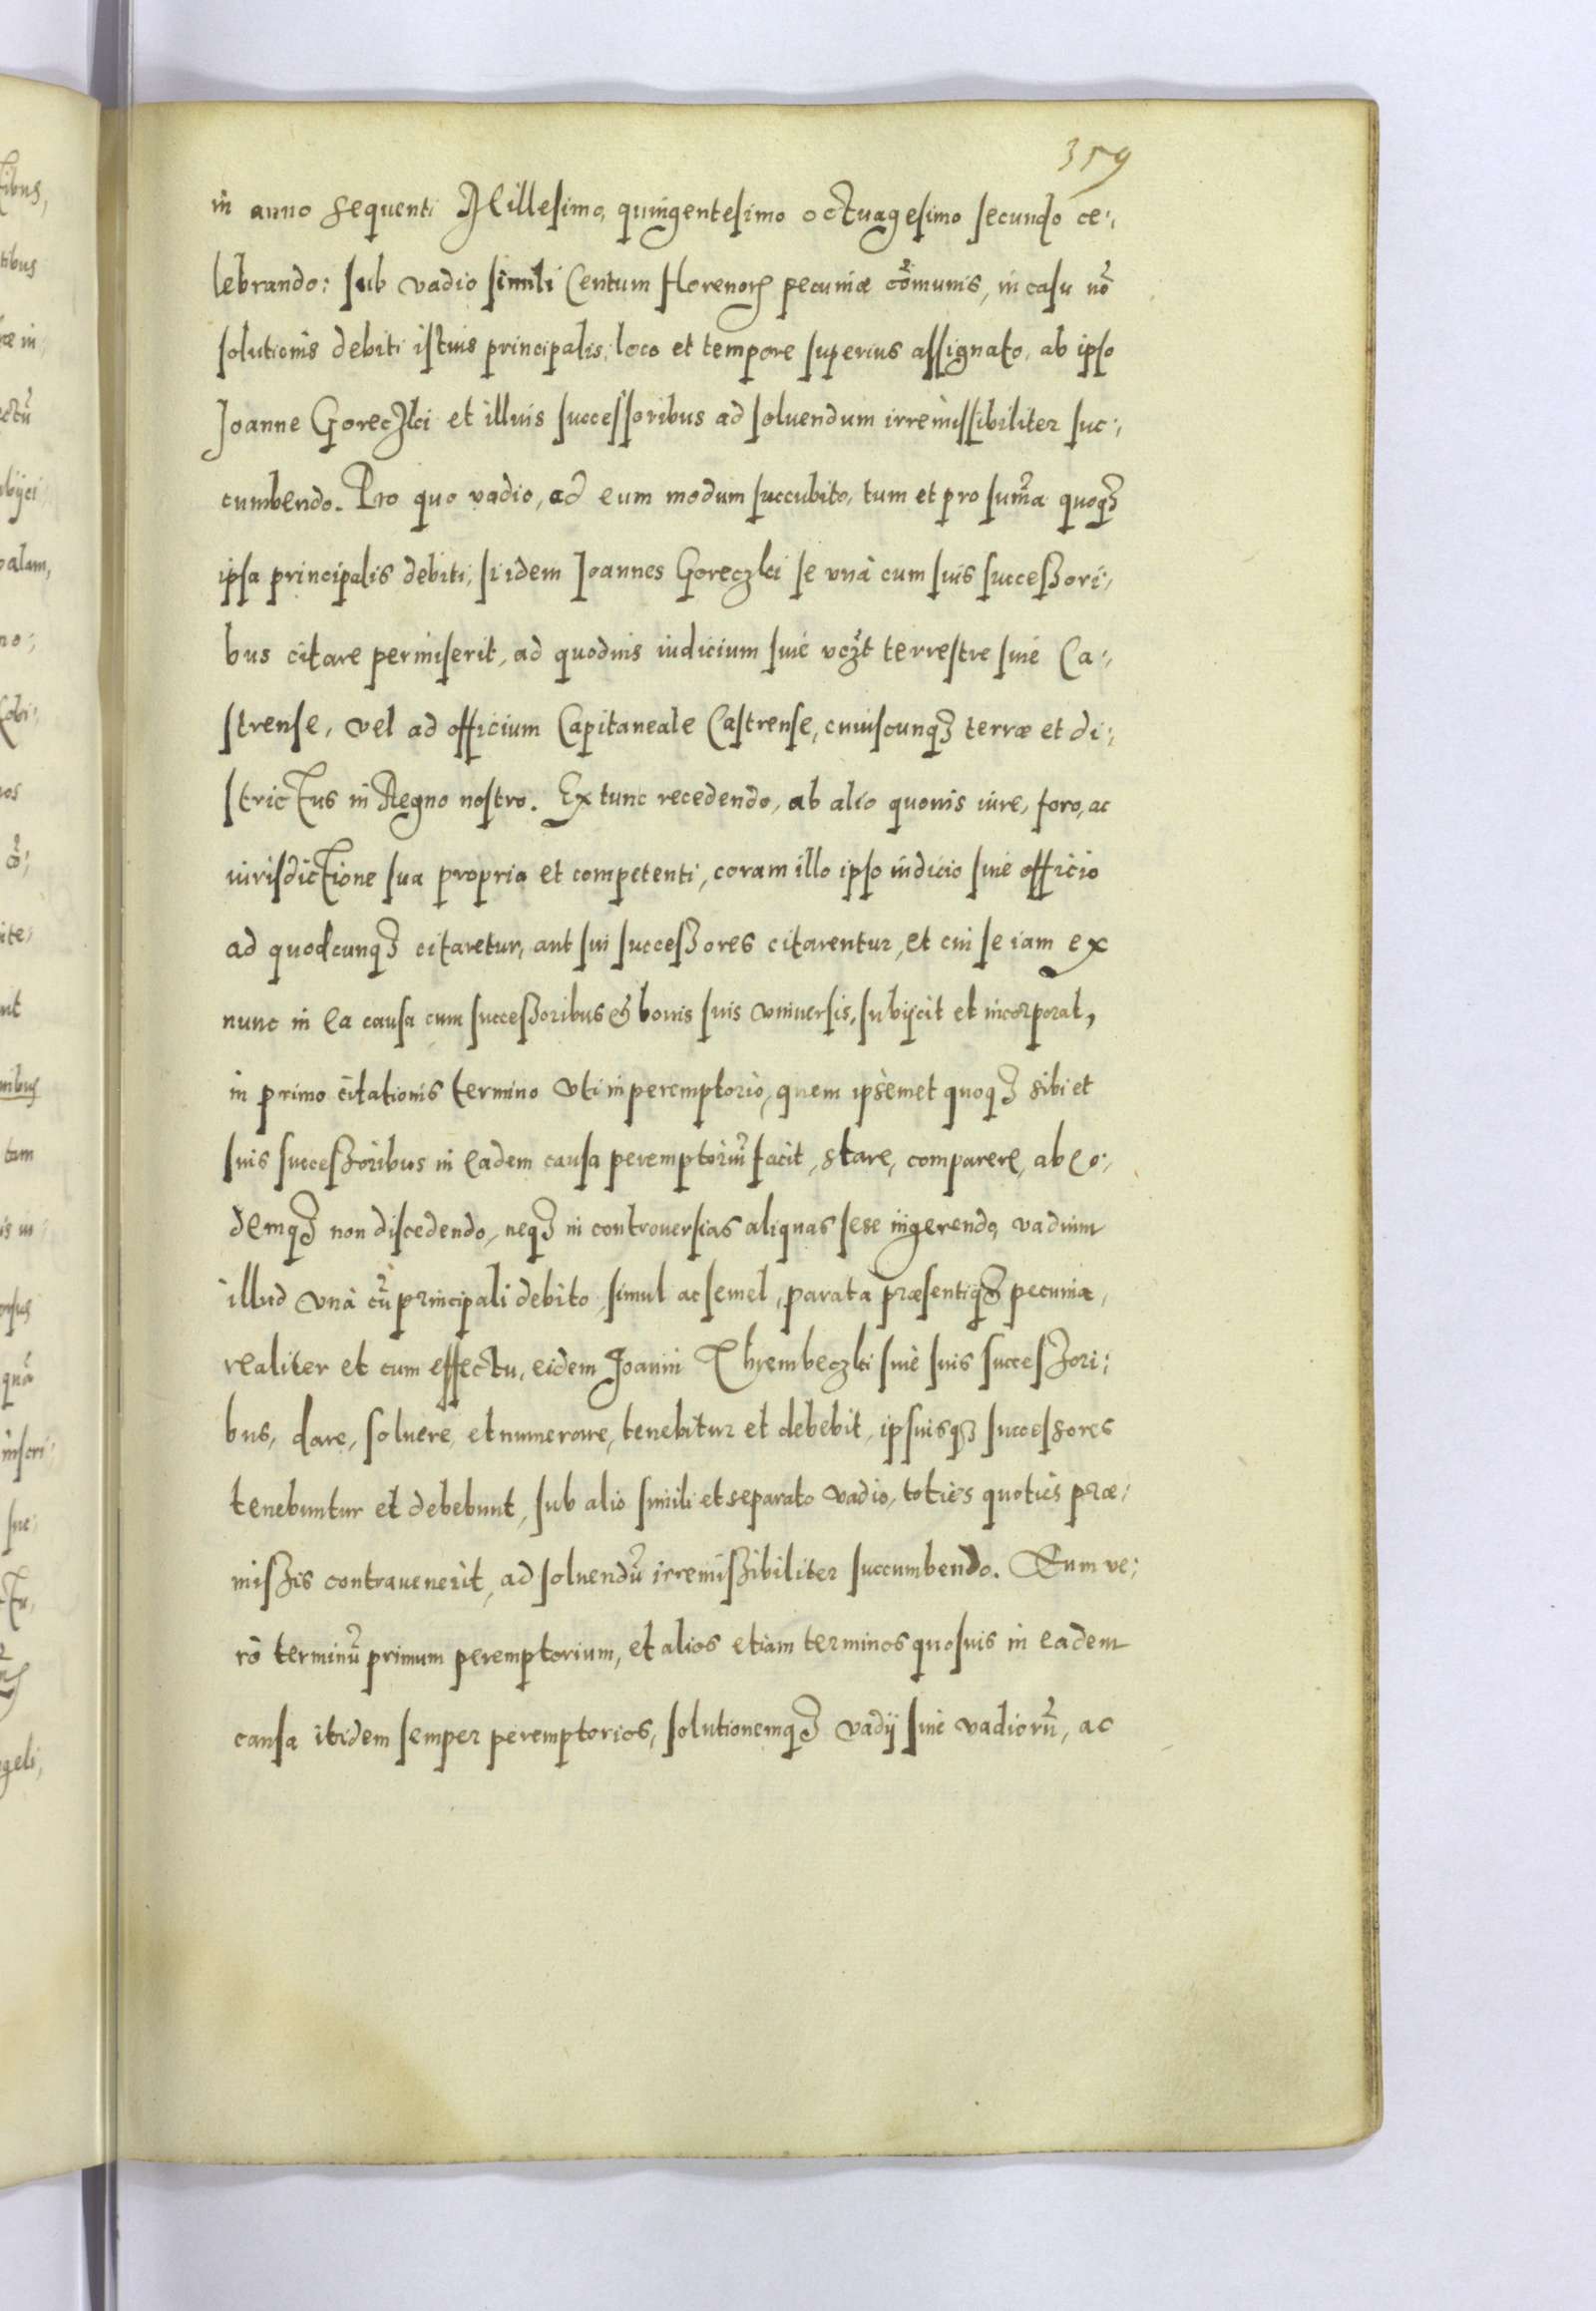 359
in anno sequenti Millesimo, quingentesimo octuagesimo secundo ce:,
lebrando: sub vadio simili Centum florenorꝝ pecuniæ cōmunis, in casu nō
solutionis debiti istius principalis, loco et tempore superius assignato, ab ipso
Joanne Goreczki et illius successoribus ad soluendum irremissibiliter suc:,
cumbendo. Pro quo vadio, ad eum modum succubito, tum et pro sum̄a quoqꝫ
ipsa principalis debiti, si idem Joannes Goreczki se vnà cum suis successori:,
bus citare permiserit, ad quoduis iudicium siue vcꝫt terrestre siue Ca:,
strense, vel ad officium Capitaneale Castrense, cuiuscunqꝫ terræ et di:,
strictus in Regno nostro. Ex tunc recedendo, ab alio quouis iure, foro, ac
iurisdictione sua propria et competenti, coram illo ipso iudicio siue officio
ad quodcunqꝫ citaretur, aut sui successores citarentur, et cui se iam ex
nunc in ea causa cum successoribus & bonis suis vniuersis, subijcit et incorporat,
in primo citationis termino vti in peremptorio, quem ipsemet quoqꝫ sibi et
suis successoribus in eadem causa peremptoriū facit, stare, comparere, ab eo:,
demqꝫ non discedendo, neqꝫ in controuersias aliquas sese ingerendo, vadium
illud vnà cū principali debito, simul ac semel, parata præsentiqꝫ pecunia,
realiter et cum effectu, eidem Joanni Chrembeczki siue suis successori:
bus, dare, soluere, et numerare, tenebitur et debebit, ipsiusqꝫ successores
tenebuntur et debebunt, sub alio simili et separato vadio, toties quoties præ:
missis contrauenerit, ad soluendū irremissibiliter succumbendo. Eum ve:
rò terminū primum peremptorium, et alios etiam terminos quosuis in eadem
causa itidem semper peremptorios, solutionemqꝫ vadij siue vadiorū, ac